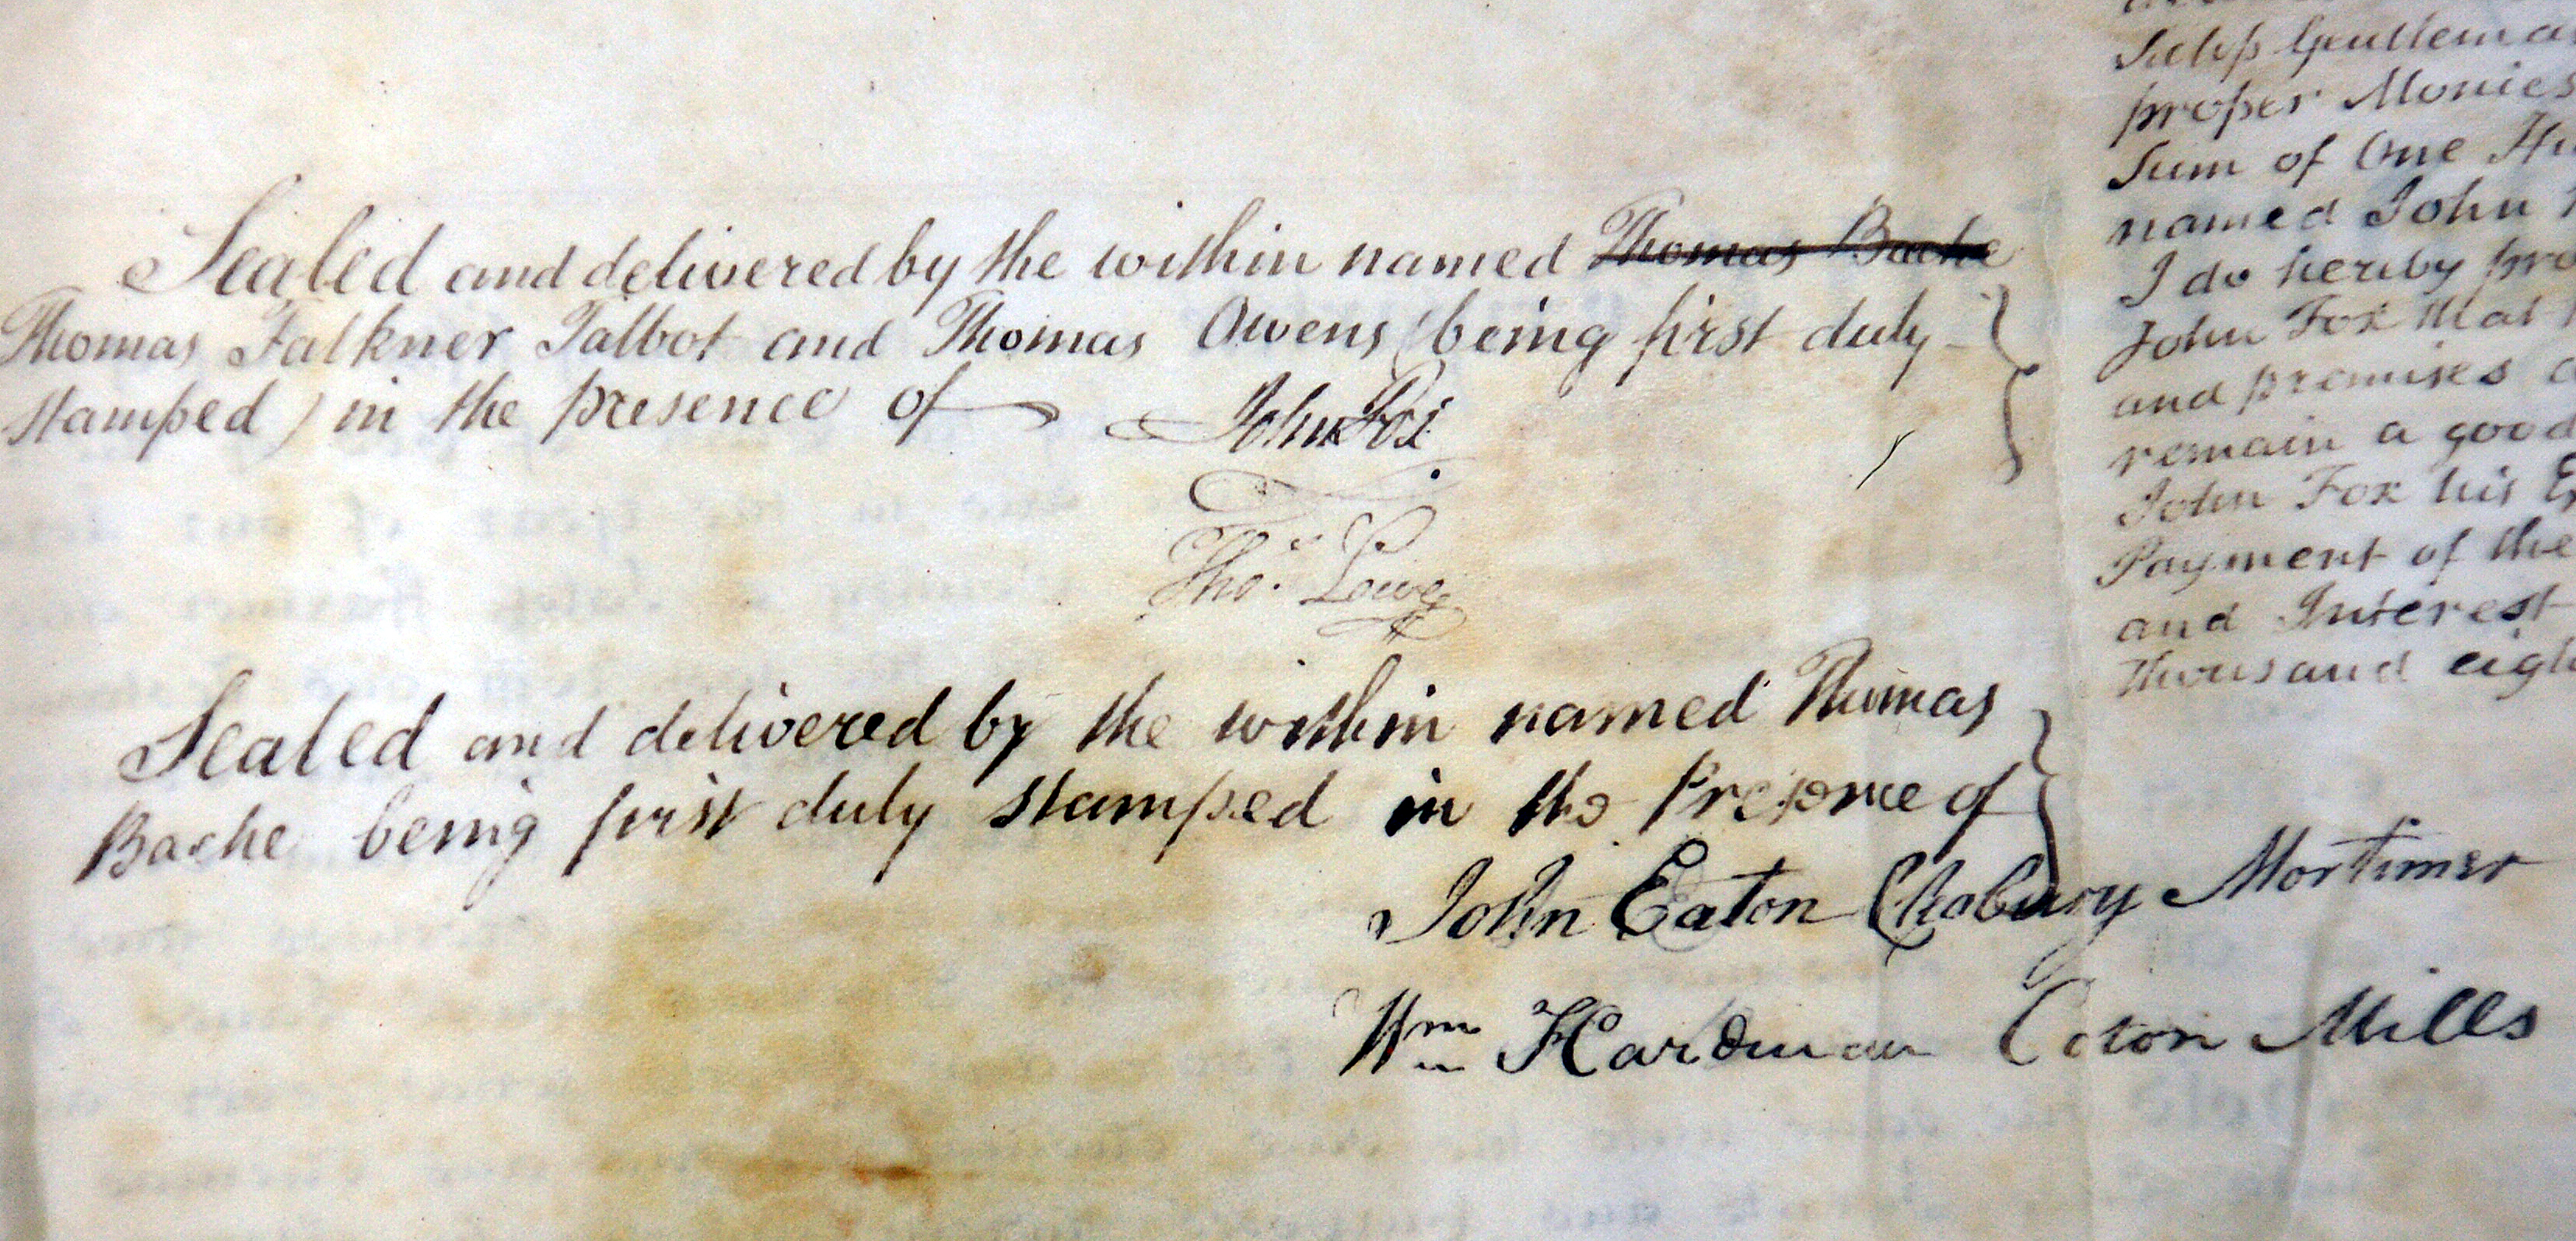 Sealed and delivered by the within named Thomas Bache
Thomas Falkner Talbot and Thomas Owens (being first duly
stamped) in the presence of John Fox
Thos. Lowe
Sealed and delivered by the within named Thomas
Bache being first duly stamped in the Presence of
John Eaton Cleobury Mortimer
Wm Hardman Coton Mills
Salop Gentleman
proper Monies
Sum of One
named John
I do hereby
John Fox that
and premises
remain a good
John Fox his
Payment of the
and Interest
thousand